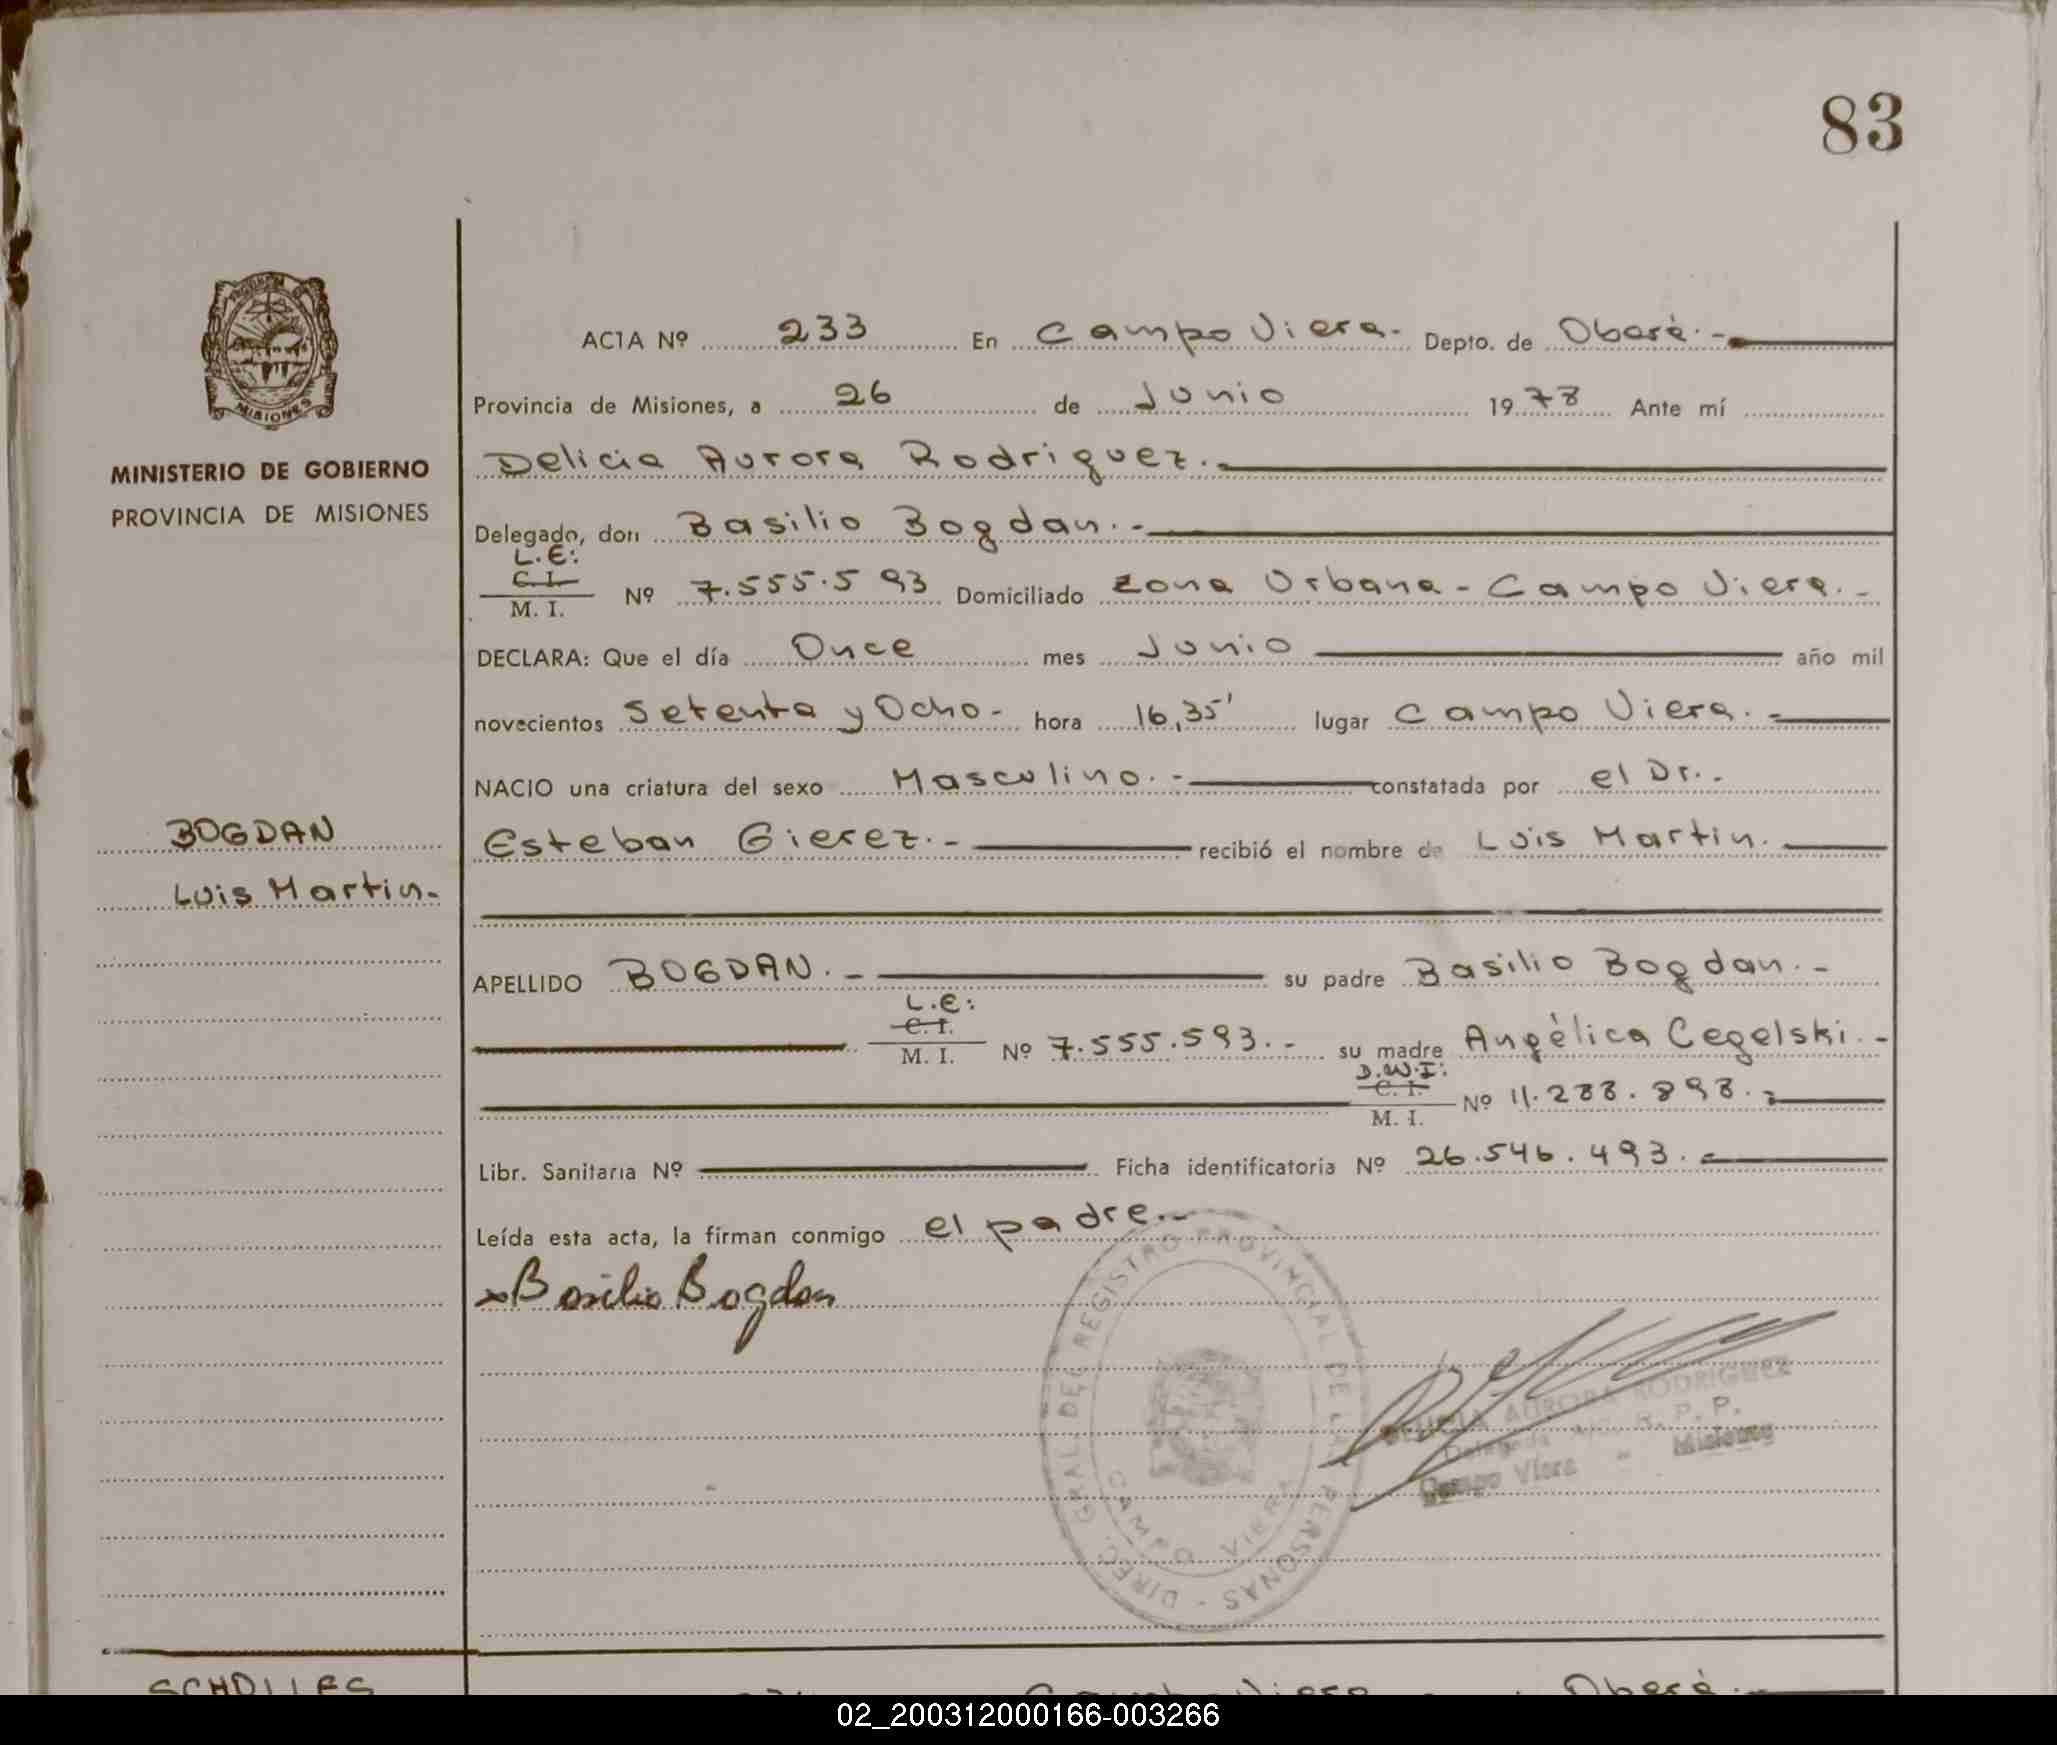 83
ACTA Nº 233 En Campo Viera.- Depto. de Oberá.-
Provincia de Misiones, a 26 de Junio 1978 Ante mí
Delicia Aurora Rodriguez.-
Delegado, don Basilio Bogdan.-
L.E:
C. I.
M. I.
Nº 7.555.593 Domiciliado Zona Urbana - Campo Viera.-
DECLARA: Que el día Once mes Junio año mil
novecientos Setenta y Ocho- hora 16,35' lugar Campo Viera.-
NACIO una criatura del sexo Masculino.- constatada por el Dr..
Esteban Gierez.- recibió el nombre de Luis Martin.
APELLIDO BOGDAN.- su padre Basilio Bogdan.-
L.E:
C. I.
M. I.
Nº 7.555.593.- su madre Angélica Cegelski.-
D.N.I:
C. I.
M. I.
Nº 11.288.898.-
Libr. Sanitaria Nº Ficha identificatoria Nº 26.546.493.-
Leída esta acta, la firman conmigo el padre.-
x Basilio Bogdan
MINISTERIO DE GOBIERNO
PROVINCIA DE MISIONES
MISIONES
BOGDAN
Luis Martin.
DIREC. GRAL. DEL REGISTRO PROVINCIAL DE LAS PERSONAS -
CAMPO VIERA
DELICIA AURORA RODRIGUEZ
Delegada R. P. P.
Campo Viera - Misiones
SCHOLLES
Campo Viera Oberá.-
02_200312000166-003266